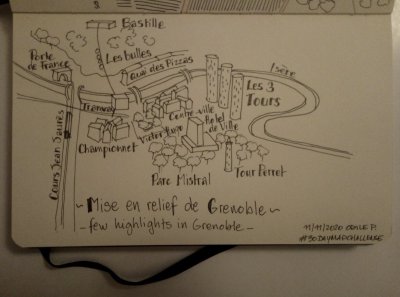 Bastille
Les bulles
Porte
de France
Quai des Pizzas
Isère
Les 3
Tours
Tramway
Centre-ville
Hotel
de Ville
Victor Hugo
Championnet
Cours Jean Jaurès
Parc Mistral
Tour Perret
~ Mise en relief de Grenoble ~
- few highlights in Grenoble -
11/11/2020
#30DAYMAPCHALLENGE